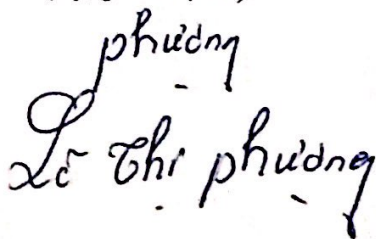 phượng
Lê Thị phượng